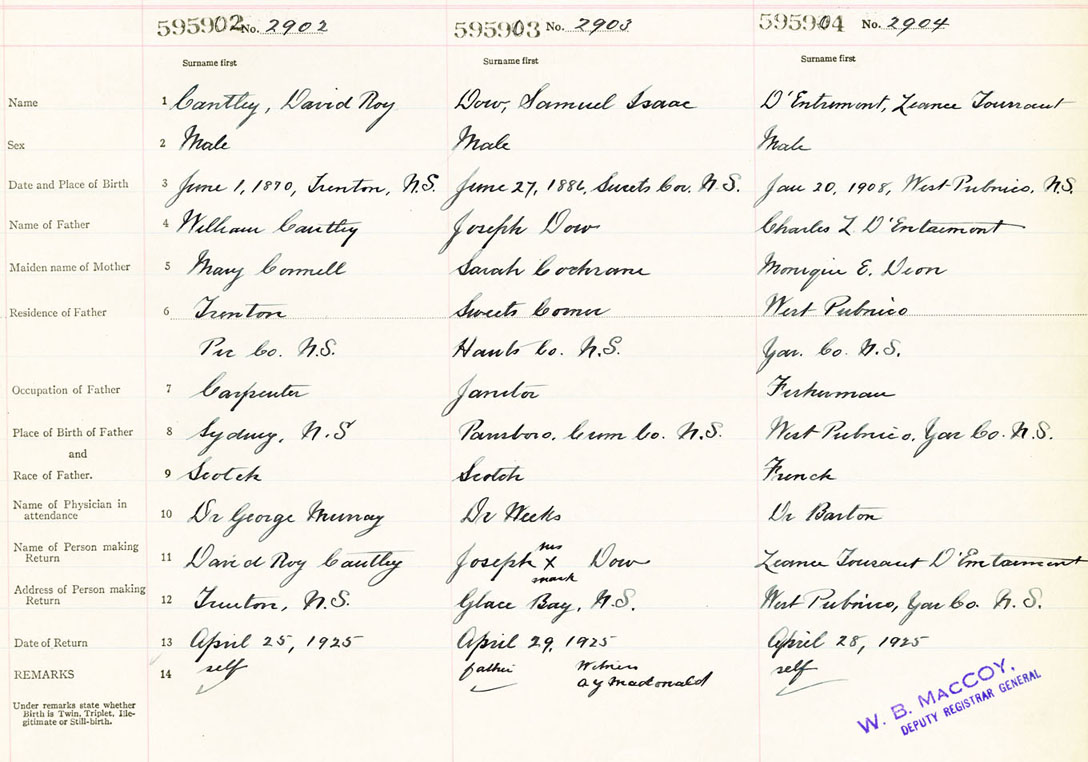 595902 No. 2902 595903 No. 2903 595904 No. 2904
Surname first Surname first Surname first
Name 1 Cantley, David Roy Dow, Samuel Isaac D'Entremont, Leance Toussaut
Sex 2 Male Male Male
Date and Place of Birth 3 June 1, 1890, Trenton, N.S. June 27, 1886, Sweets Cor. N.S. Jan 20, 1908, West Pubnico, N.S.
Name of Father 4 William Cantley Joseph Dow Charles L. D'Entremont
Maiden name of Mother 5 Mary Connell Sarah Cochrane Monique E. Deon
Residence of Father 6 Trenton Sweets Corner West Pubnico
Pic Co. N.S. Hants Co. N.S. Yar. Co. N.S.
Occupation of Father 7 Carpenter Janitor Fisherman
Place of Birth of Father 8 Sydney, N.S Parrsboro, Cum Co. N.S. West Pubnico, Yar Co. N.S.
and
Race of Father. 9 Scotch Scotch French
Name of Physician in
attendance 10 Dr George Murray Dr Weeks Dr Barton
Name of Person making
Return 11 David Roy Cantley Joseph his X mark Dow Leance Tousaut D'Entremont
Address of Person making
Return 12 Trenton, N.S. Glace Bay, N.S. West Pubnico, Yar Co. N.S.
Date of Return 13 April 25, 1925 April 29, 1925 April 28, 1925
REMARKS 14 self father Witness self
A Y Macdonald
Under remarks state whether
Birth is Twin, Triplet, Ille-
gitimate or Still-birth.
W. B. MACCOY,
DEPUTY REGISTRAR GENERAL